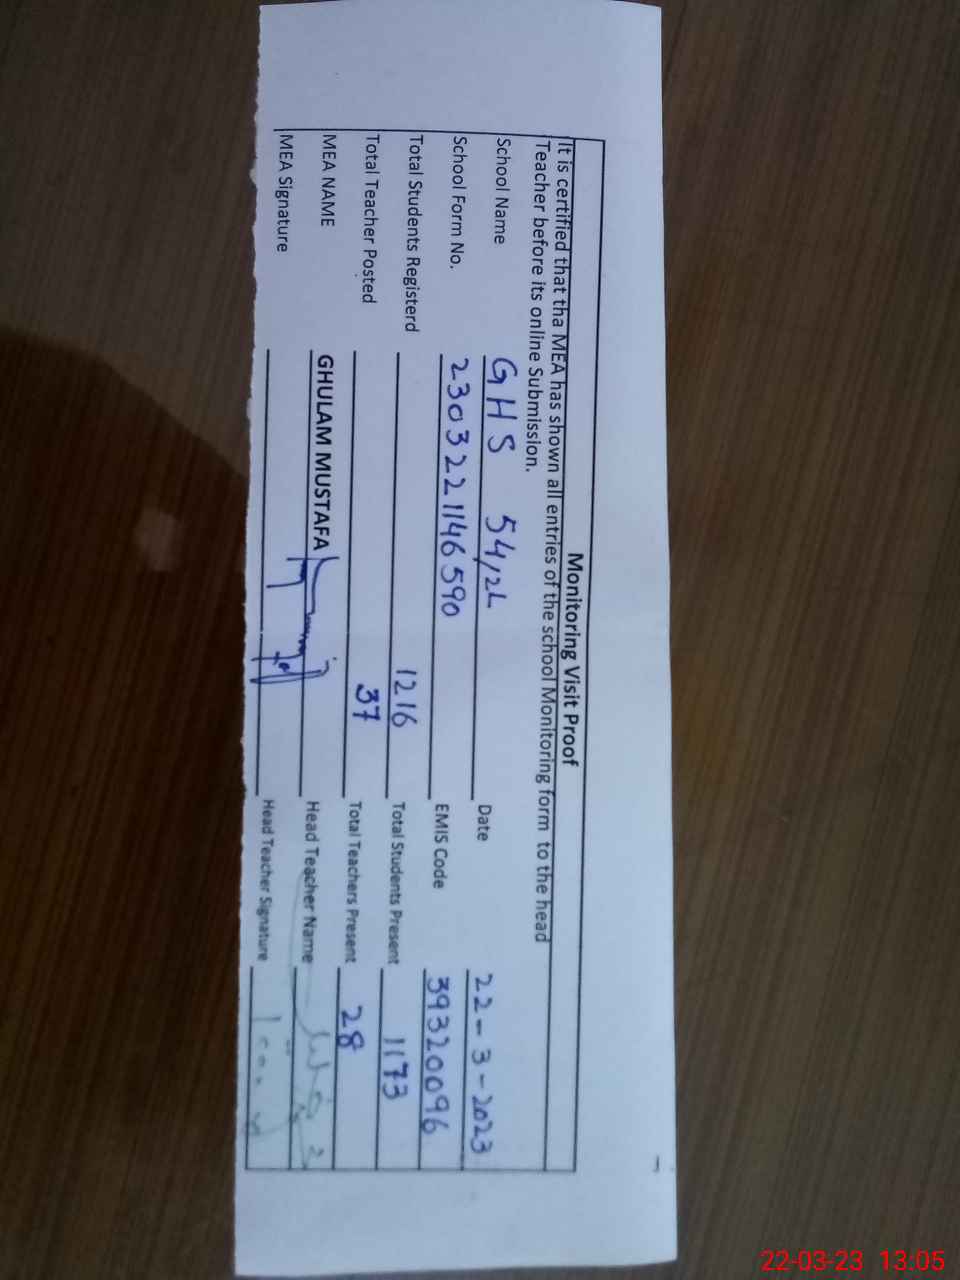 Monitoring Visit Proof
It is certified that tha MEA has shown all entries of the school Monitoring form to the head
Teacher before its online Submission.
School Name GHS 54/2L Date 22-3-2023
School Form No. 230322114 6590 EMIS Code 39320096
Total Students Registerd 1216 Total Students Present 1173
Total Teacher Posted 37 Total Teachers Present 28
MEA NAME GHULAM MUSTAFA Head Teacher Name
MEA Signature Head Teacher Signature
22-03-23 13:05